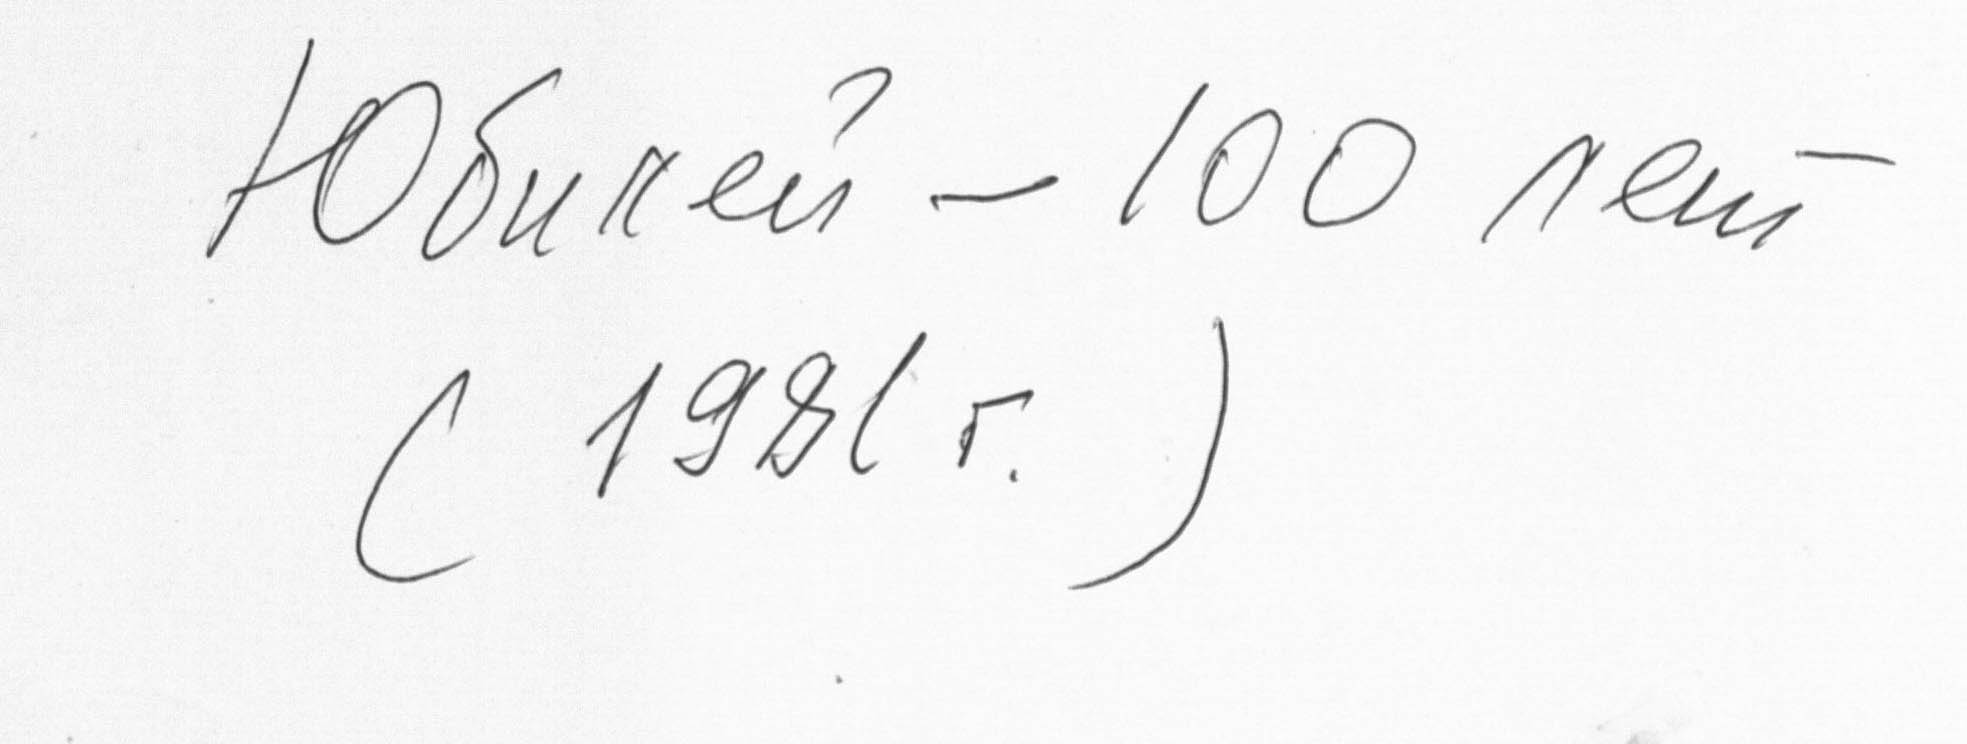 Юбилей – 100 лет
( 1981 г. )